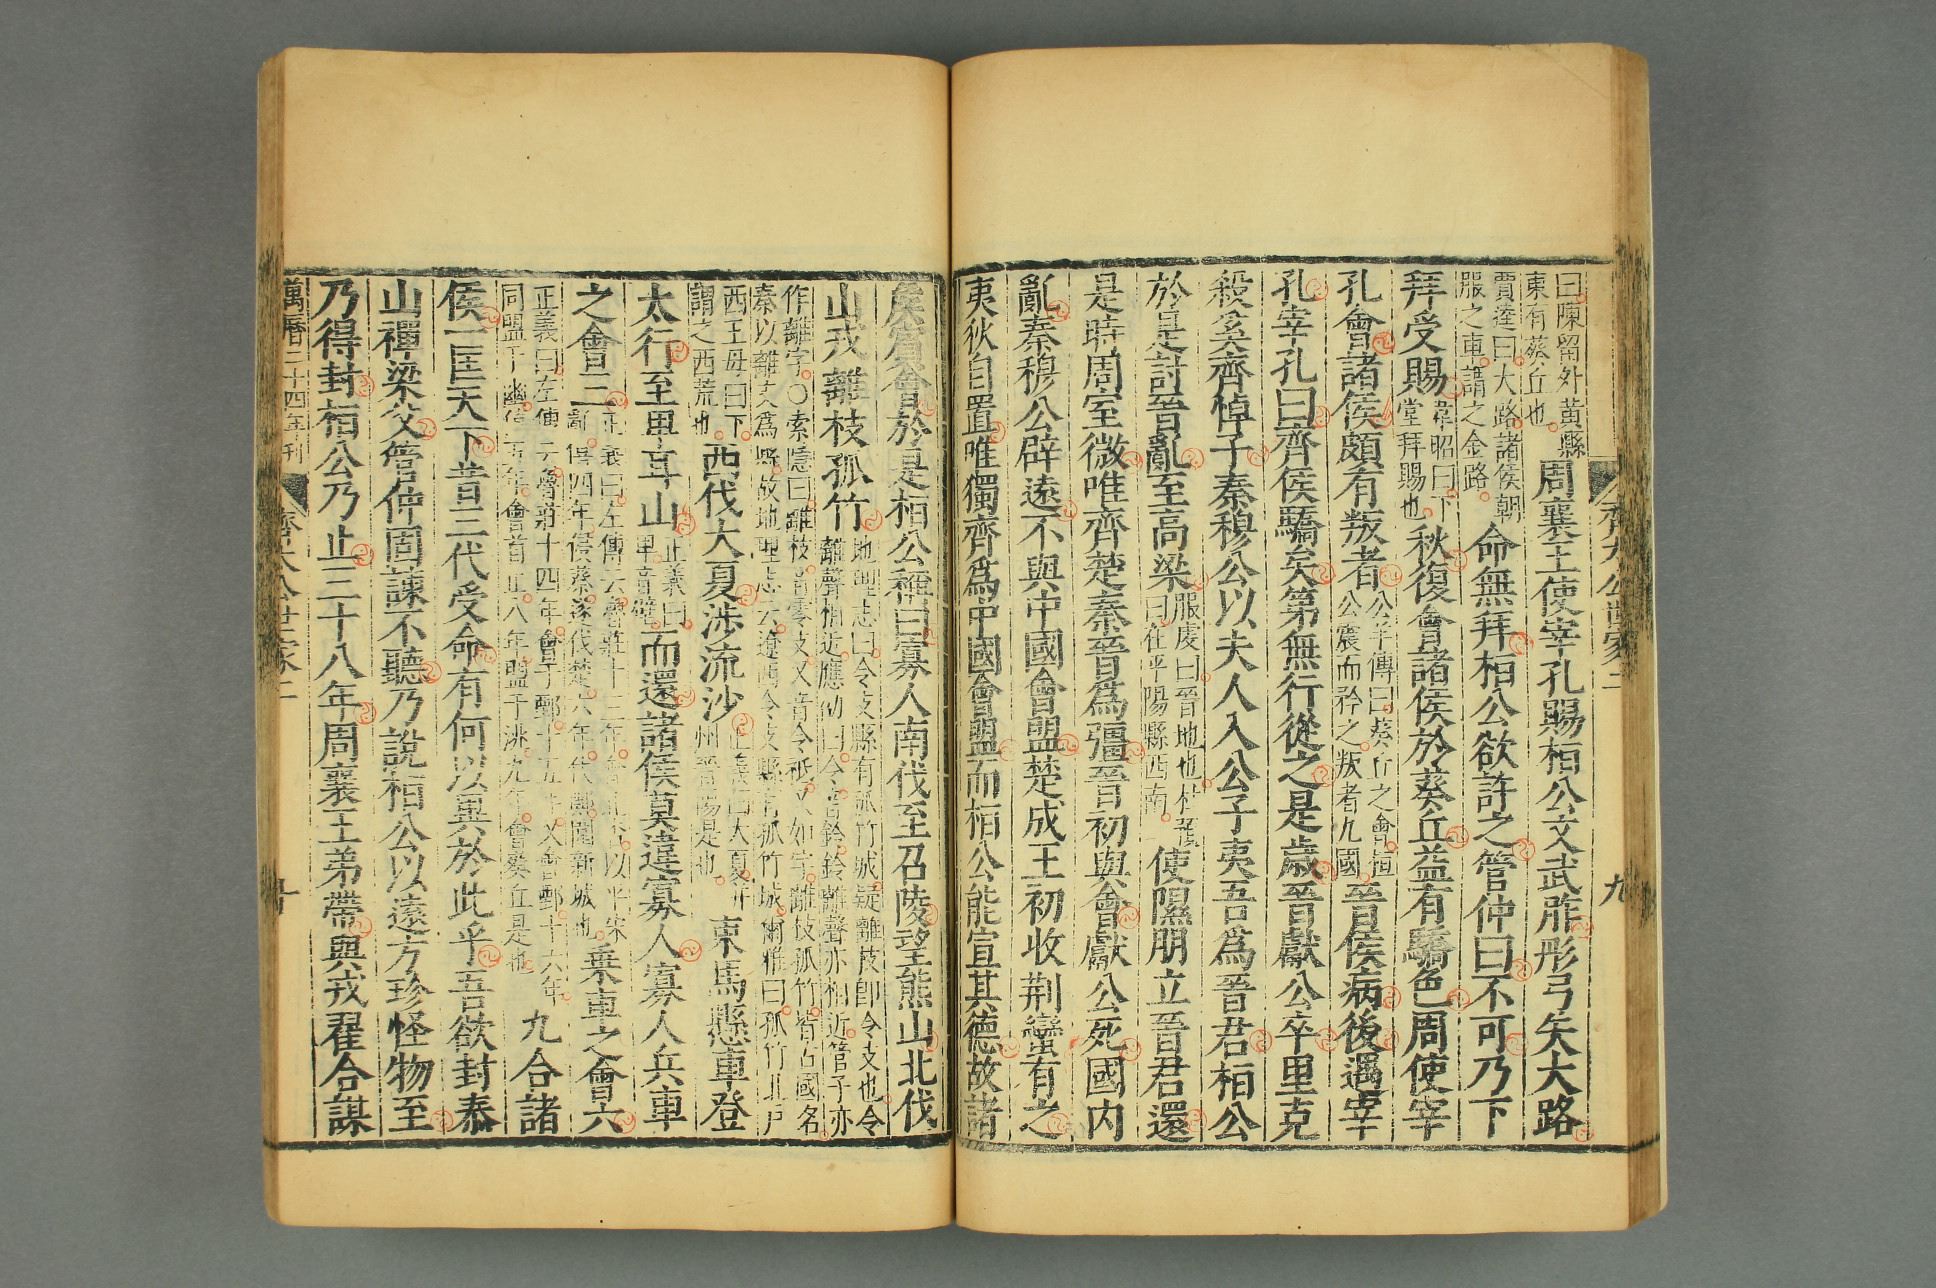 曰陳留外黃縣東有葵丘也周襄王使宰孔賜桓公文武胙彤弓矢大路
賈逵曰大路諸侯朝服之車謂之金路命無拜桓公欲許之管仲曰不可乃下
拜受賜韋昭曰下堂拜賜也秋復會諸侯於葵丘益有驕色周使宰
孔會諸侯頗有叛者公羊傳曰葵丘之會桓公震而矜之叛者九國晉侯病後遇宰
孔宰孔曰齊侯驕矣第無行從之是歲晉獻公卒里克
殺奚齊悼子秦穆公以夫人入公子夷吾為晉君桓公
於是討晉亂至高梁服虔曰晉地也杜預曰在平陽縣西南使隰朋立晉君還
是時周室微唯齊楚秦晉為彊晉初與會獻公死國內
亂秦穆公辟遠不與中國會盟楚成王初收荆蠻有之
夷狄自置唯獨齊為中國會盟而桓公能宣其德故諸
齊太公世家二
九
侯賓會於是桓公稱曰寡人南伐至召陵望熊山北伐
山戎離枝孤竹地理志曰令支縣有孤竹城疑離枝即令支也令離聲相近應劭曰令音鈴鈴離聲亦相近管子亦
作離字〇索隱曰離枝音零支又音令祇又如字離枝孤竹皆古國名秦以離支為縣故地理志云遼西令支縣有孤竹城爾雅曰孤竹北戶
西王母日下謂之四荒也西伐大夏涉流沙正義曰大夏并州晉陽是也束馬懸車登
太行至卑耳山正義曰卑音壁而還諸侯莫違寡人寡人兵車
之會三正義曰左傳云魯莊十三年會北杏以平宋亂僖四年侵蔡遂伐楚六年伐鄭圍新城也乘車之會六
正義曰左傳云魯莊十四年會于鄄十五年又會鄄十六年同盟于幽僖五年會首止八年盟于洮九年會葵丘是也九合諸
侯一匡天下昔三代受命有何以異於此乎吾欲封泰
山禪梁父管仲固諫不聽乃說桓公以遠方珍怪物至
乃得封桓公乃止三十八年周襄王弟帶與戎翟合謀
萬曆二十四年刊
齊太公世家二
十